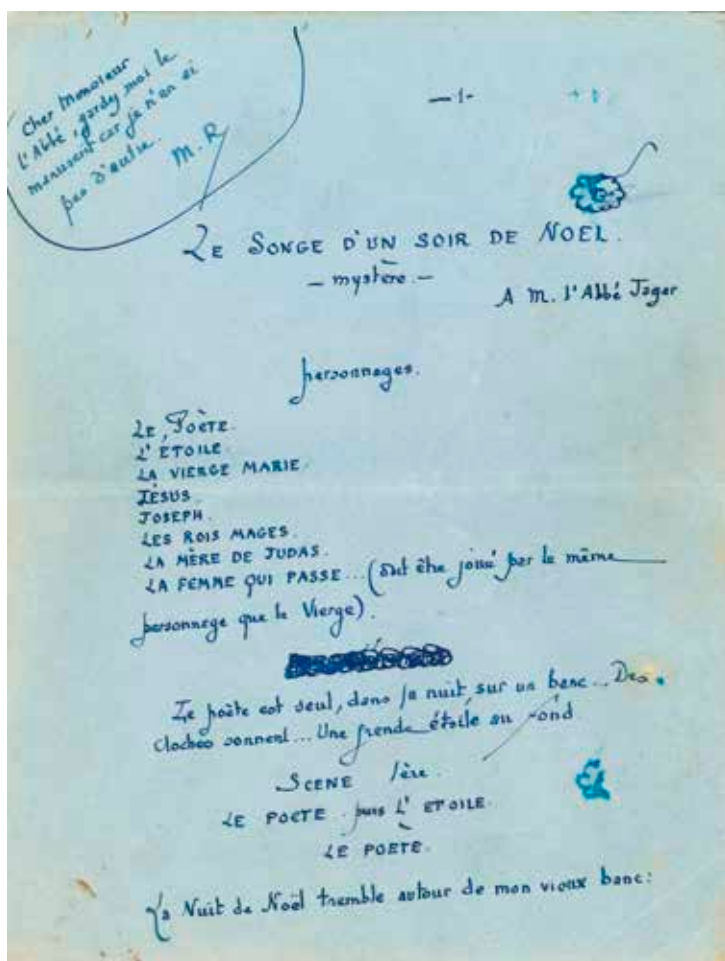 Cher Monsieur
l'Abbé, gardez moi le
manuscrit car je n'en ai
pas d'autre.
M. R
— 1 -
LE SONGE D'UN SOIR DE NOEL.
— mystère. —
A M. l'Abbé Jager
personnages.
LE POÈTE.
L'ETOILE.
LA VIERGE MARIE.
JESUS.
JOSEPH.
LES ROIS MAGES.
LA MÈRE DE JUDAS.
LA FEMME QUI PASSE... (doit être joué par le même
personnage que la Vierge).
Le poète est seul, dans la nuit, sur un banc... Des
cloches sonnent... Une grande étoile au fond
SCENE 1ère.
LE POETE puis L'ETOILE.
LE POETE.
La Nuit de Noël tremble autour de mon vieux banc: